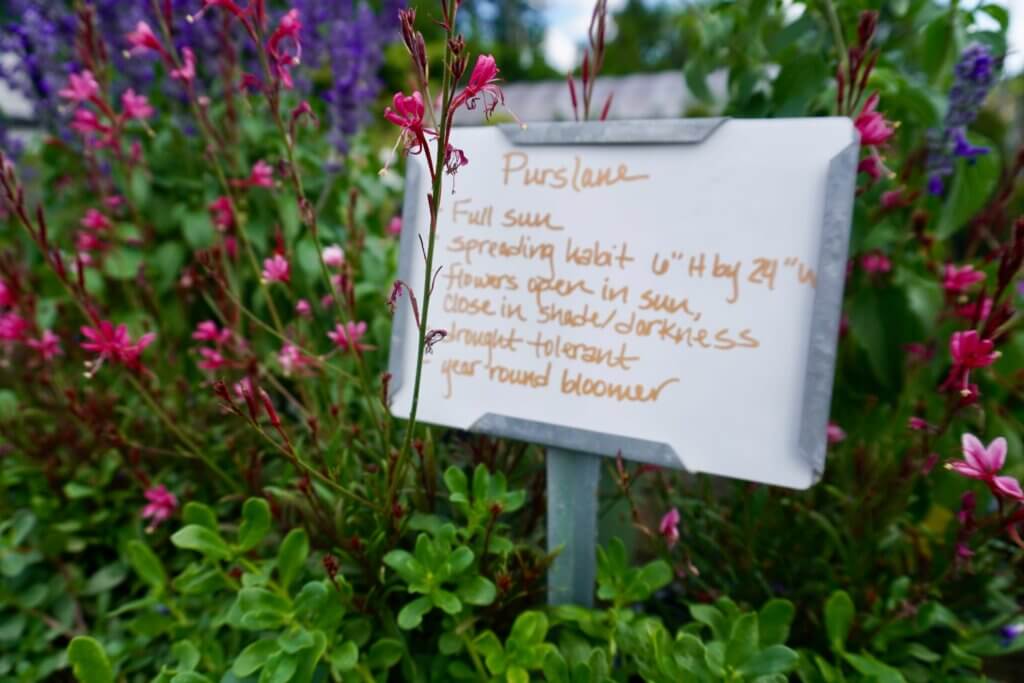 Purslane
- Full sun
- spreading habit 6" H by 24" W
- flowers open in sun,
close in shade/darkness
- drought tolerant
- year-round bloomer